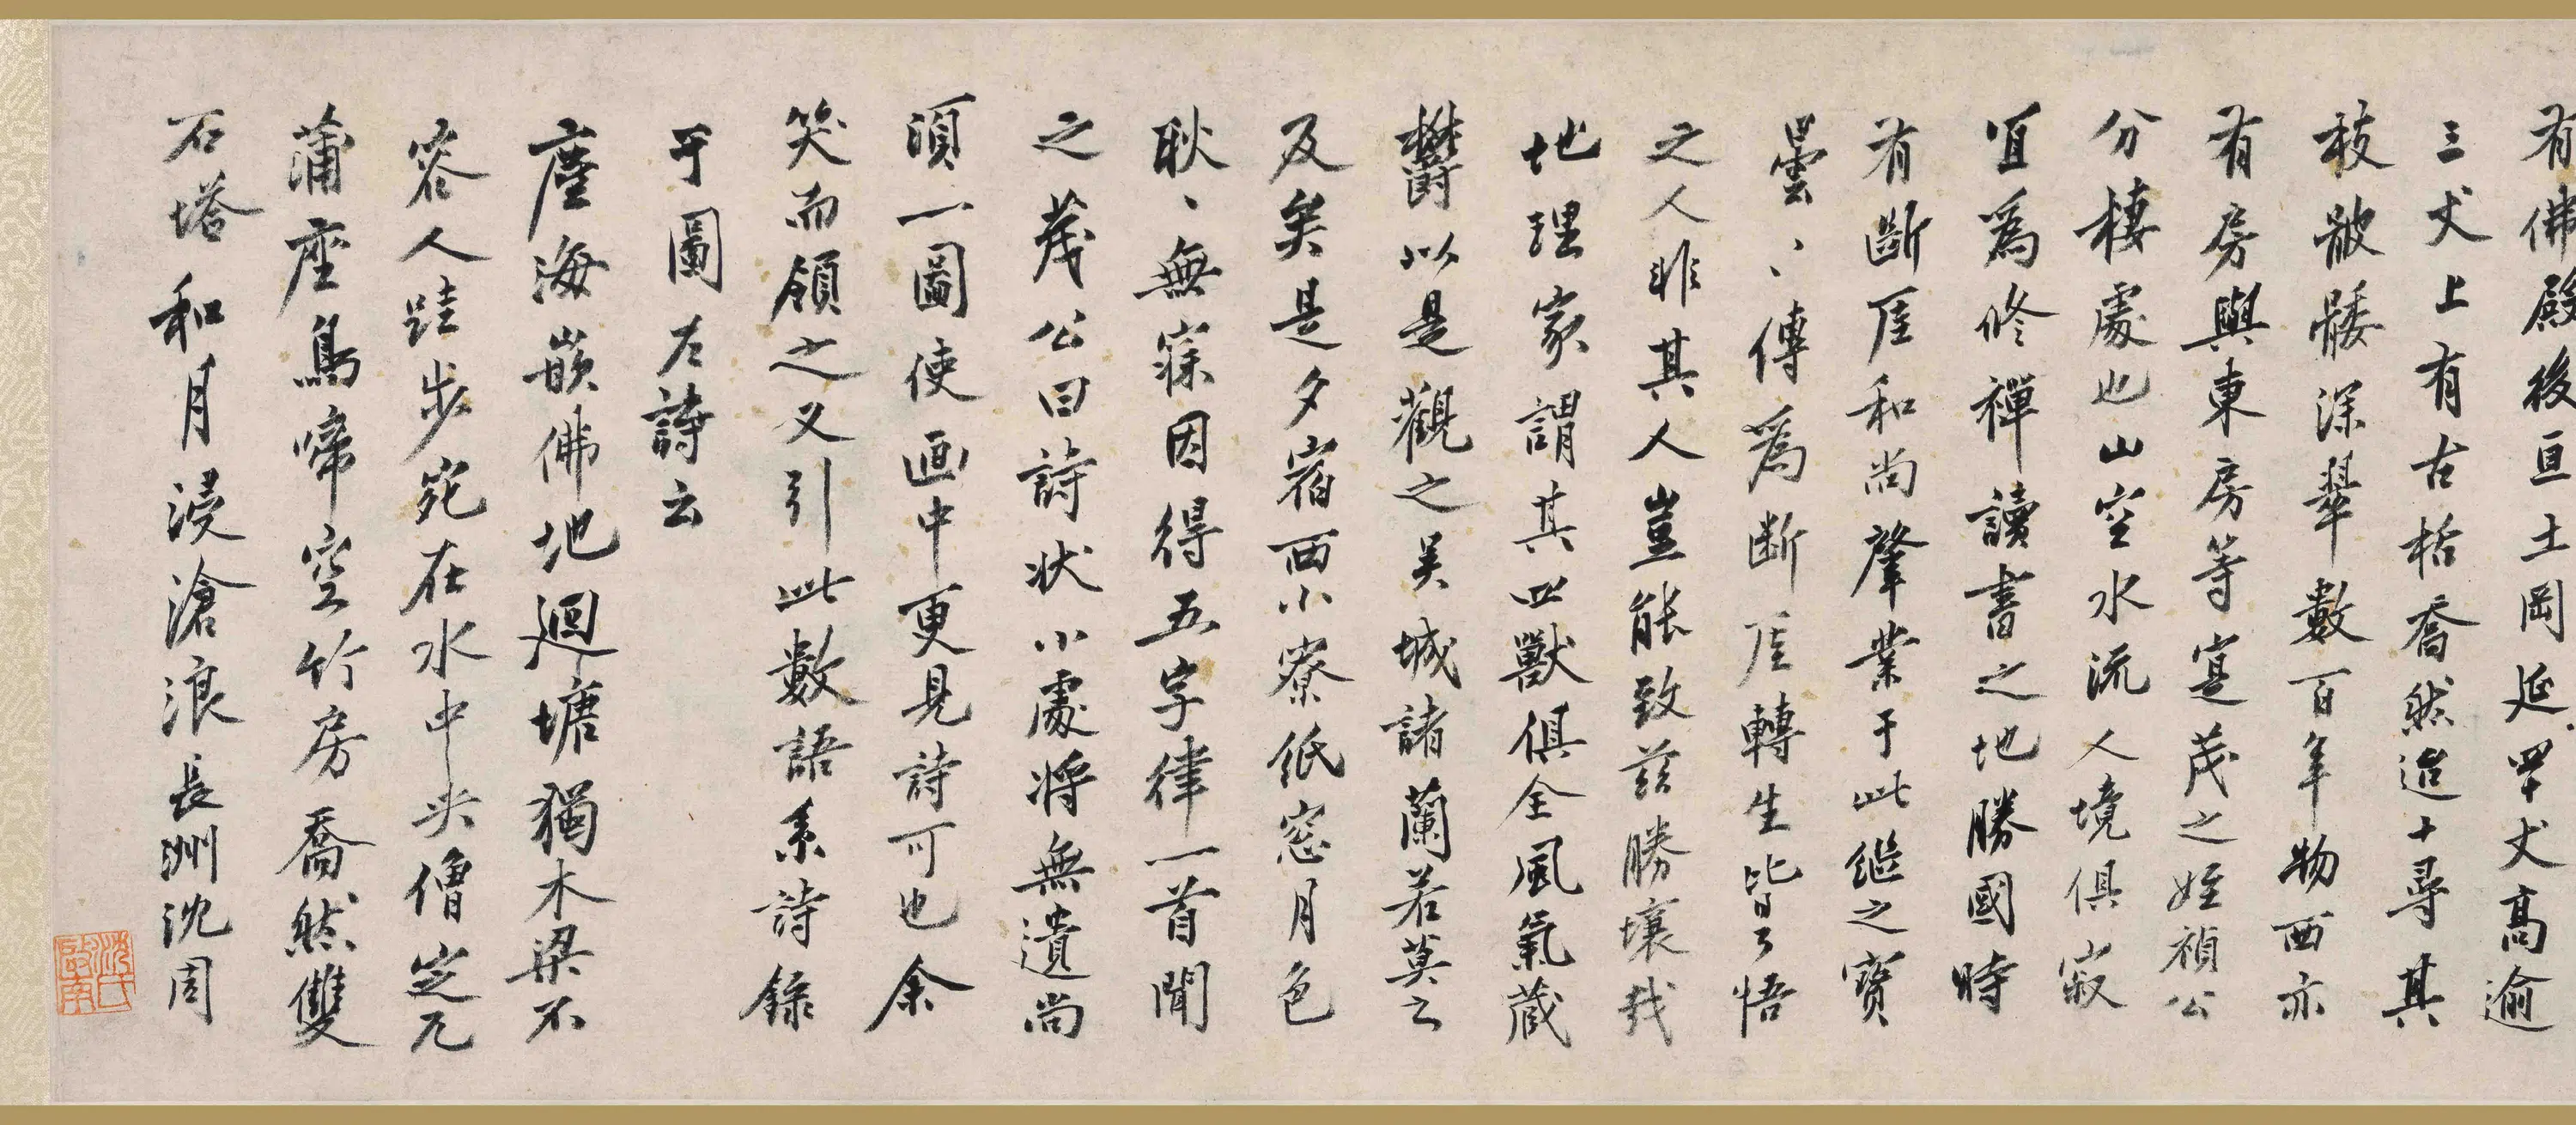 有佛殿後亘土岡延四十丈高逾
三丈上有古栝喬然迨十尋其
枝骳骽深翠數百年物西亦
有房與東房等寔茂之姪禎公
分棲處也山空水流人境俱寂
宜爲修禪讀書之地勝國時
有斷厓和尚肇業于此繼之寶
曇、、傳爲断厓轉生皆了悟
之人非其人豈能致兹勝壤哉
地理家謂其四獸俱全風氣蔵
欝以是觀之吴城諸蘭若莫之
及矣是夕宿西小寮紙窓月色
耿、無寐因得五字律一首聞
之茂公曰詩状小處将無遺尚
須一圖使画中更見詩可也余
笑而領之又引此數語系詩錄
于圖左詩云
塵海嵌佛地迴塘獨木梁不
容人跬步宛在水中央僧定兀
蒲座鳥啼空竹房喬然雙
石塔和月浸滄浪長洲沈周
沈氏啟南